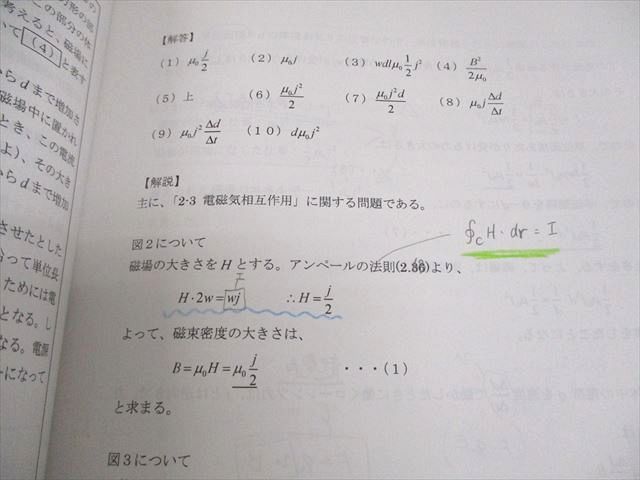 方形の部
この部分の体
考えると、磁場に
いて (4) と表す
からdまで増加さ
磁場中に置かれ
とき、この電流
よ)、その大き
からdまで増加
させたとした
沿って単位長
ためには電
となる。し
なる。電源
トになって
【解答】
(1) μ₀ j/2 (2) μ₀j (3) wdlμ₀ 1/2 j² (4) B²/2μ₀
(5) 上 (6) μ₀j²/2 (7) μ₀j²d/2 (8) μ₀j Δd/Δt
(9) μ₀j² Δd/Δt (10) dμ₀j²
【解説】
主に、「2·3 電磁気相互作用」に関する問題である。
∮c H · dr = I
図2について
磁場の大きさをHとする。アンペールの法則(2.36)より、
I
H·2w = wj ∴H = j/2
よって、磁束密度の大きさは、
B = μ₀H = μ₀ j/2 ・・・(1)
と求まる。
図3について